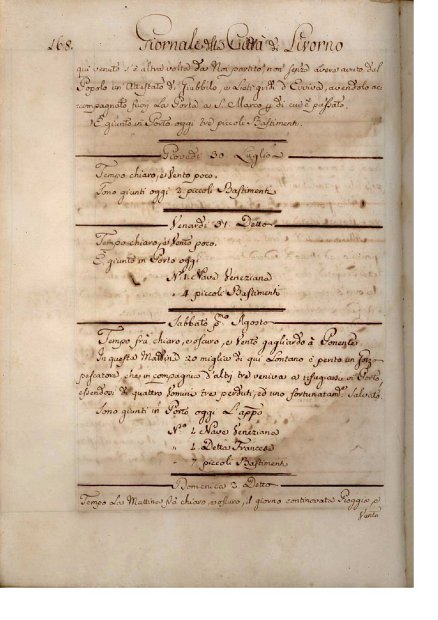 168. Giornale della Città di Livorno
qui venuto s'è altre volte da Noi partito, non senza avere avuto dal
Popolo in Attestato di Giubbilo, e Lieti gridi d'Evviva, avendolo ac
compagnato fuori La Porta a S. Marco, p di cui è passato.
È giunto in Porto oggi tre piccoli Bastimenti.
Giovedì 30 Luglio
Tempo chiaro, e Vento poco.
Sono giunti oggi 2 piccoli Bastimenti
Venardi 31 Detto
Tempo chiaro, e Vento poco.
È giunto in Porto oggi
N.º 1. Nave Veneziana
" 4 piccoli Bastimenti
Sabbato p.º Agosto
Tempo frà chiaro, e oscuro, e Vento gagliardo à Ponente.
In questa Mattina 20 miglia di qui Lontano è perito un
pescatore che in compagnia d'altri tre veniva a rifugiarsi in Porto,
essendovi di quattro Uomini tre perduti, ed uno fortunatam.e Salvato.
Sono giunti in Porto oggi L'app.o
N.º 1 Nave Veneziana
" 1 Detta Francese
" 7 piccoli Bastimenti
Domenica 2 Detto
Tempo La Mattina frà chiaro, e oscuro, il giorno continovata Pioggia, e
Vento